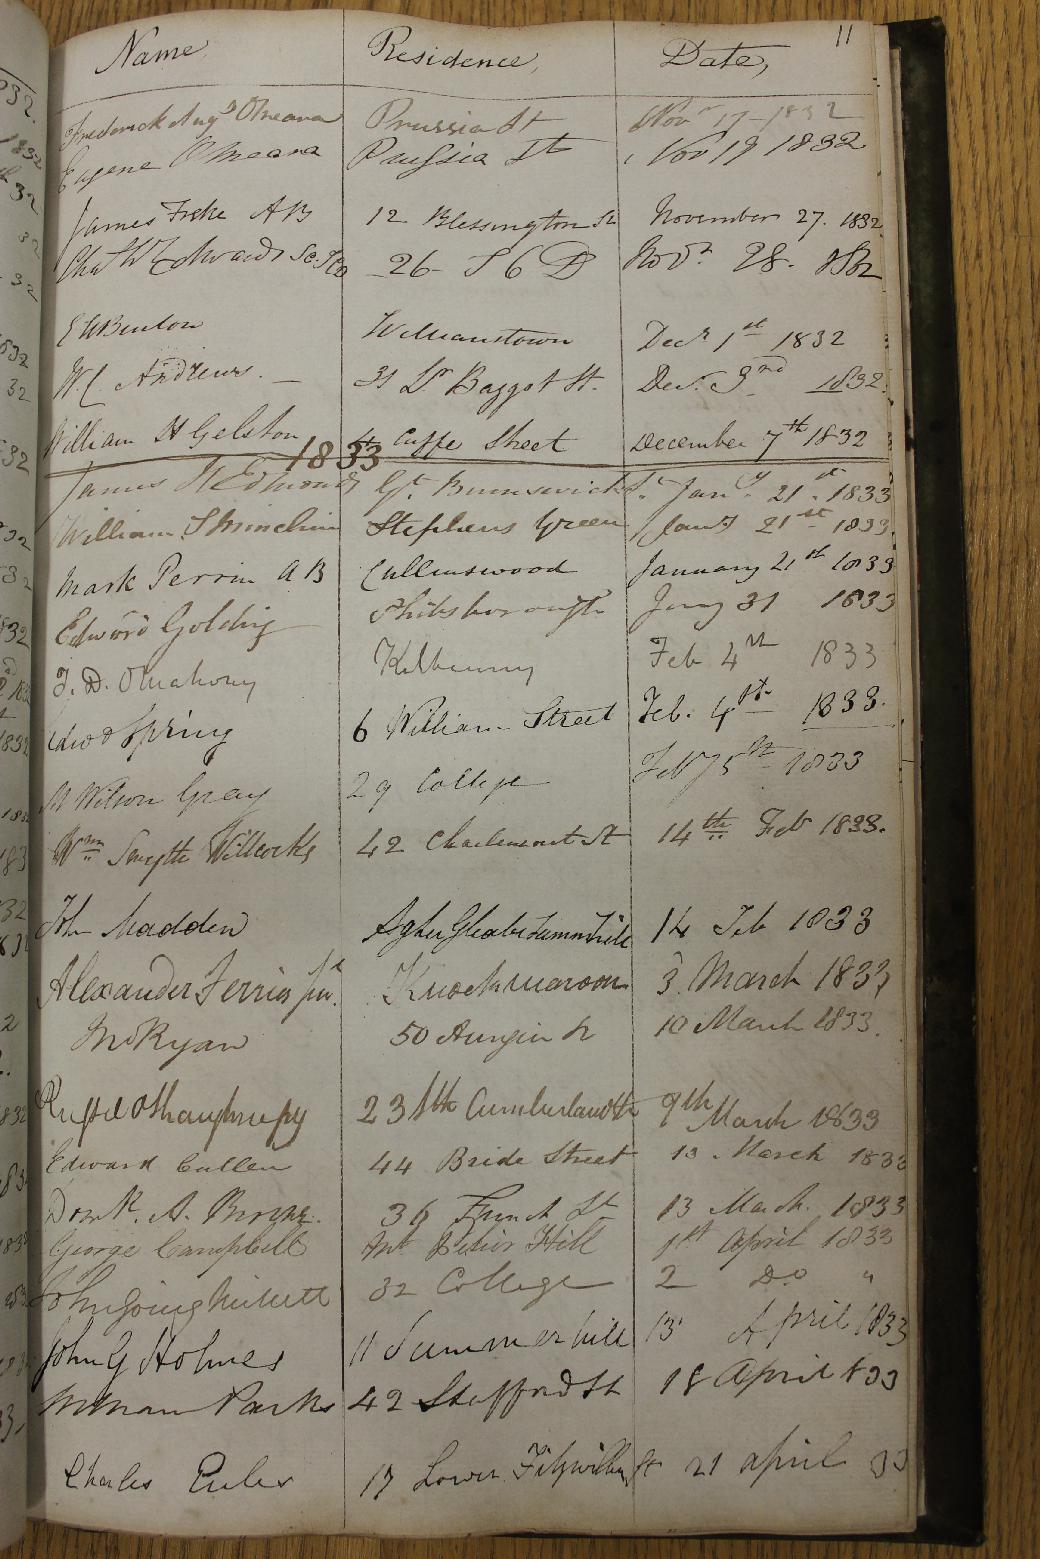 11
Name, Residence, Date,
Frederick Augs OMeara Prussia St Novr 17 1832
Eugene OMeara Prussia St Nov 19 1832
James Freke AB 12 Blessington St November 27. 1832
Chas W Edwards Sc. 26 Novr 28. 1832
E W Benton Williamstown Decr 1st 1832
W C Andrews. 31 Lr Baggot St. Dec. 3rd 1832
William H Gelston Cuffe Street December 7th 1832
1833
James H Edmonds Gt. Brunswick St. Jany. 21st. 1833
William S Minchin Stephens Green Jany 21st 1833
Mark Perrin AB Cullenswood January 21st 1833
Edward Golding Phibsborough Jany 31 1833
J. D. OMahony Kilkenny Feb 4th 1833
Edwd Spring 6 William Street Feb. 4th 1833.
M Wilson Gray 29 College Feby 5th 1833
Wm Smyth Willcocks 42 Charlemont St 14th Feb 1833.
John Madden Agher Glebe Summerhill 14 Feb 1833
Alexander Ferrier Jnr. Knockmaroon 3 March 1833
Ryan 50 Aungier St 10 March 1833.
23 Sth Cumberland St 9th March 1833
Edward Cullen 44 Bride Street 13 March 1833
Domk. A. 36 French St 13 March 1833
George Campbell Hill 1st April 1833
John Going 32 College 2 Do "
John G Holmes 11 Summerhill 13 April 1833
Parks 42 Stafford St 18 April 1833
Charles 17 Lower Fitzwilliam St 21 April 33